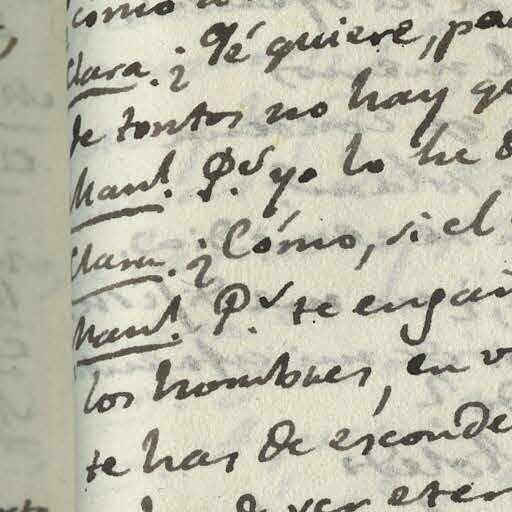 como
Clara. ¿Qé quiere, pa
de tontos no hay q
Manl. Pr yo lo he d
Clara. ¿Cómo, si el
Manl. Pr te engañ
los hombres, en v
te has de esconde
de ver eter